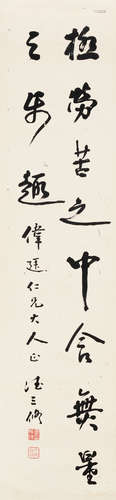 極勞苦之中含無量
之樂趣
偉廷仁兄大人正